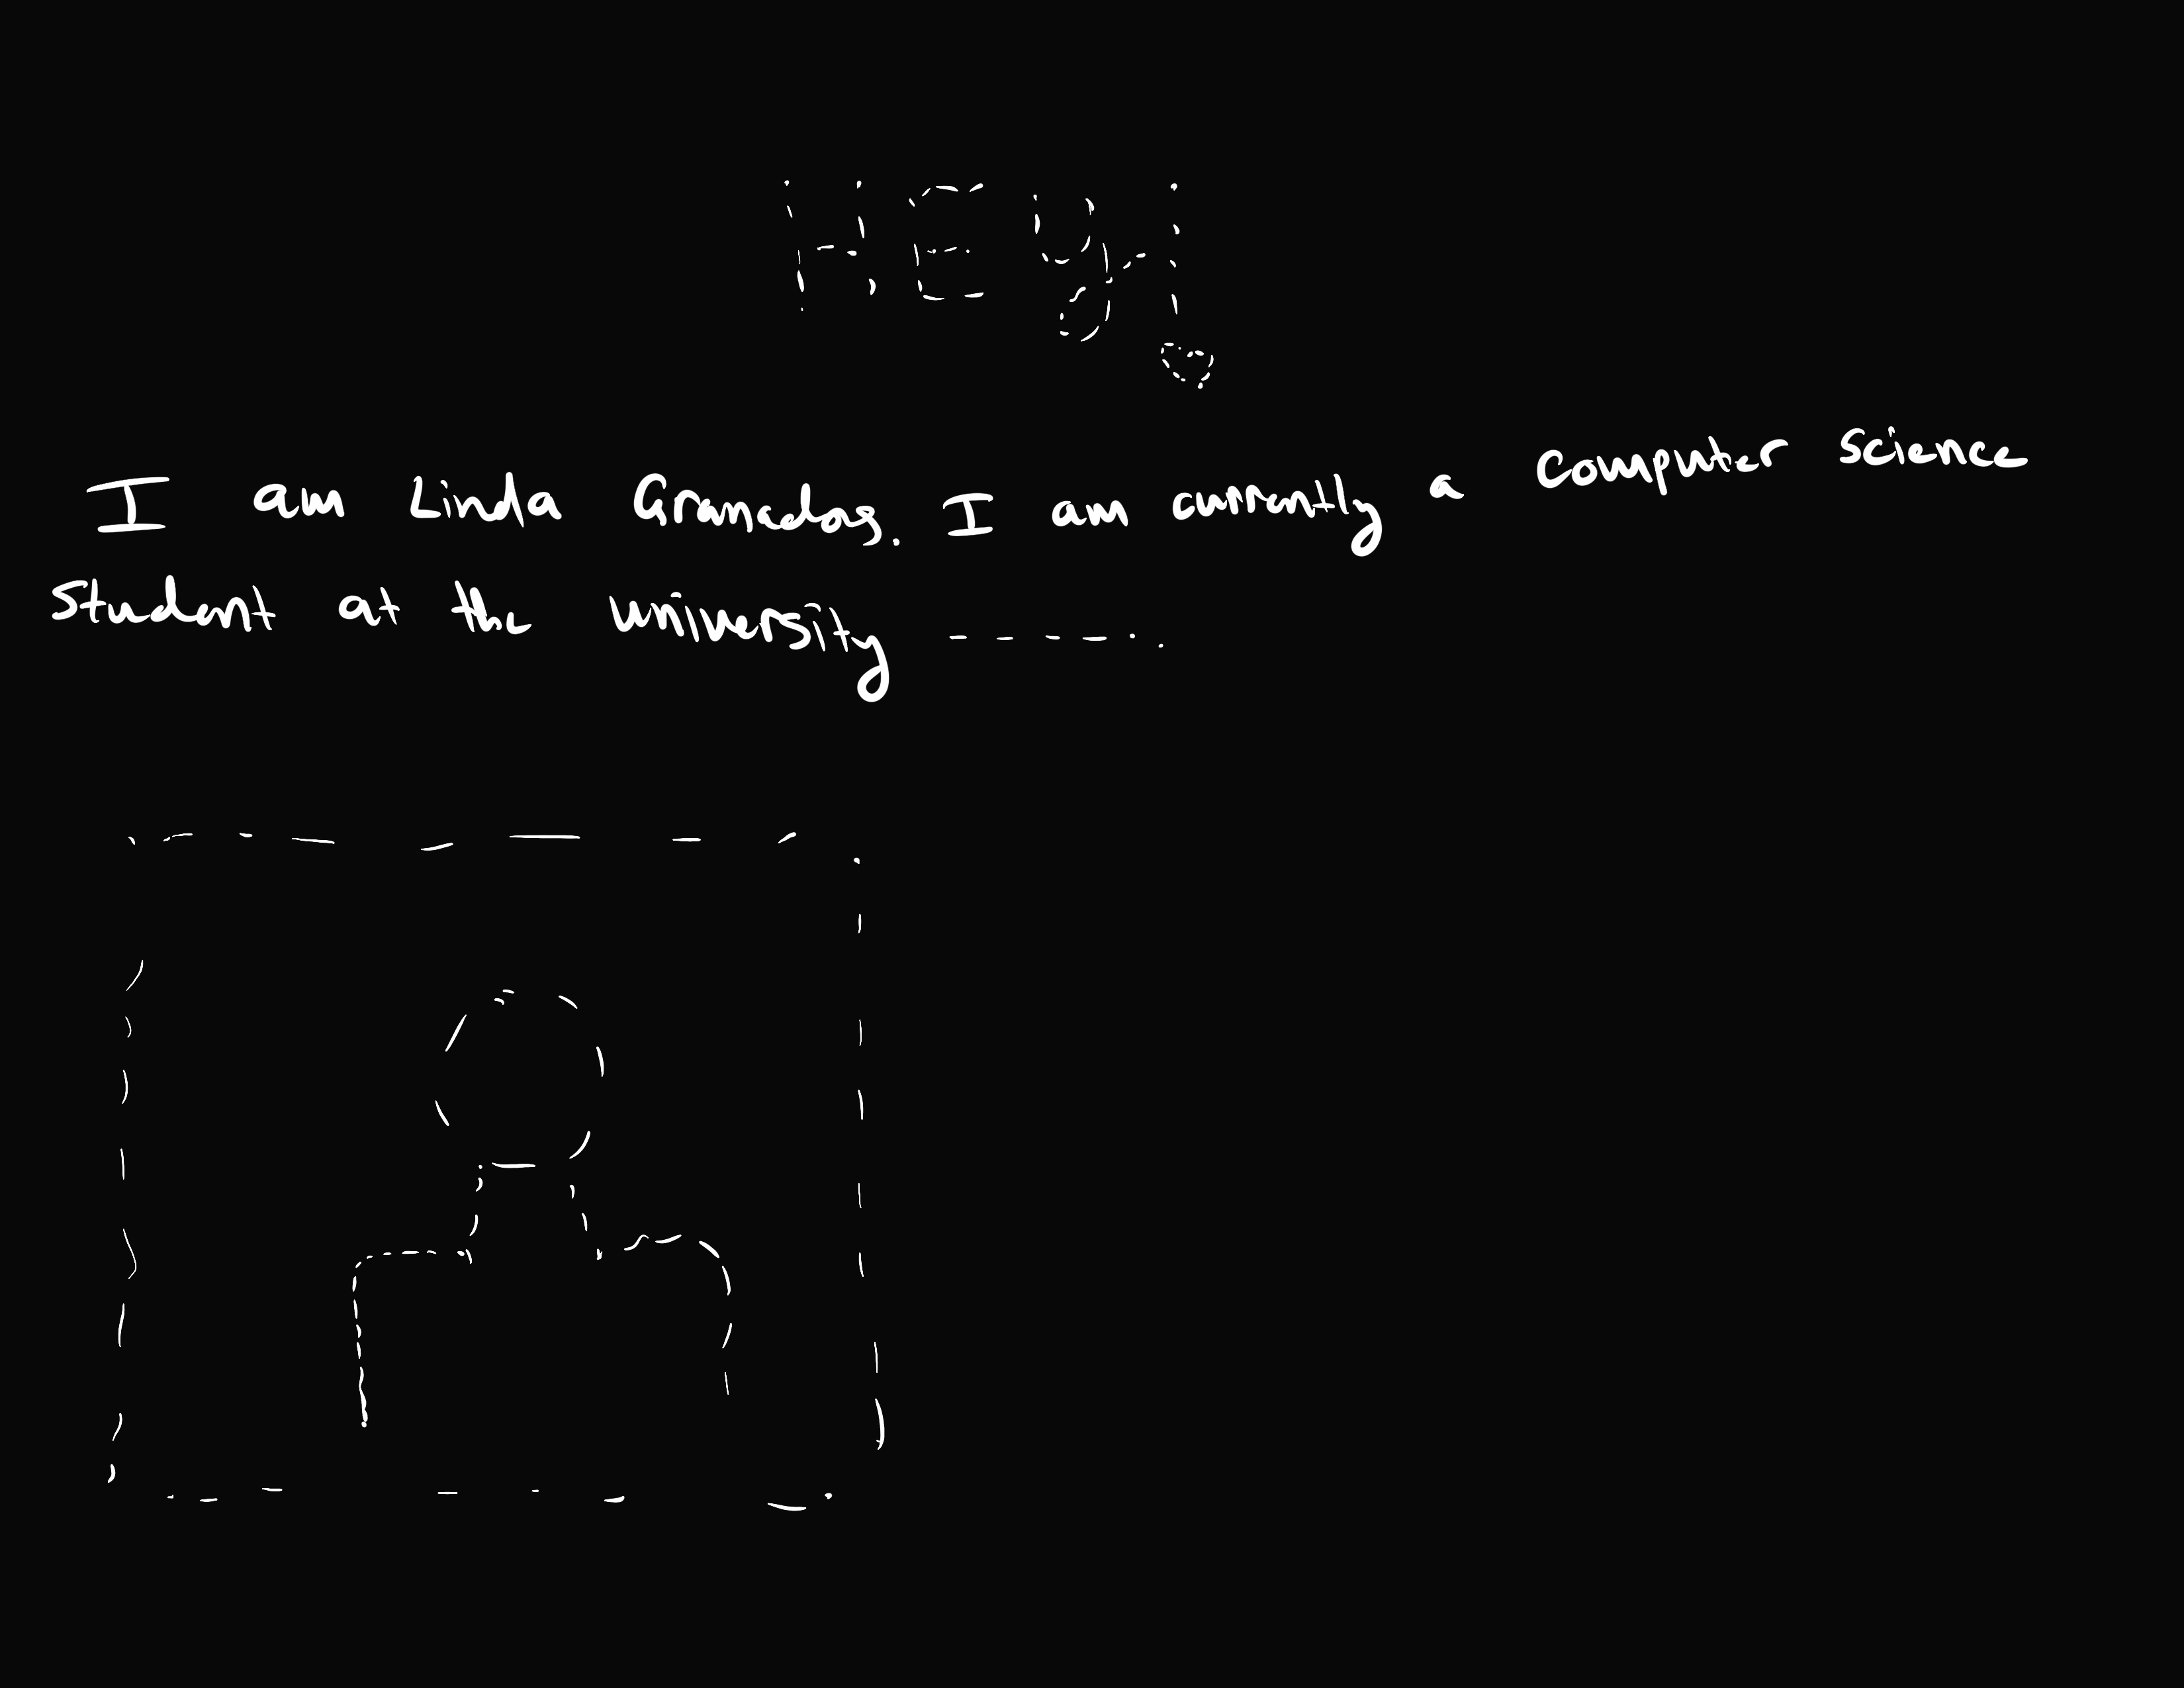 HEy!
I am Linda Granados. I am currently a Computer Science
Student at the university - - - - - .